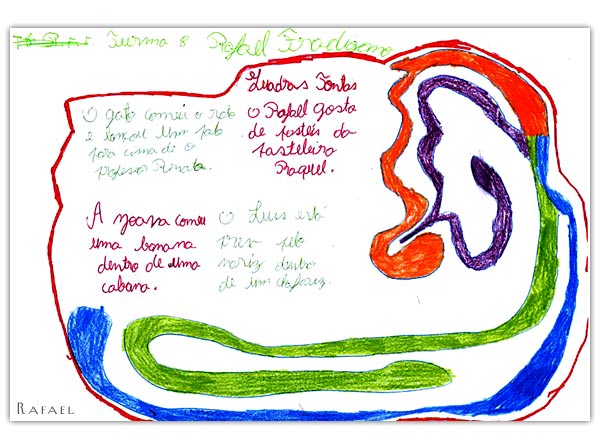 Turma 8 Rafael
Quadras Tontas
O gato comeu o rato
e lançou um pato
para cima de o
professor Renato.
O Rafael gosta
de pastéis da
pasteleira
Raquel.
A Joana comeu
uma banana
dentro de uma
cabana.
O Luis está
preso pelo
nariz dentro
de um chafariz.
RAFAEL